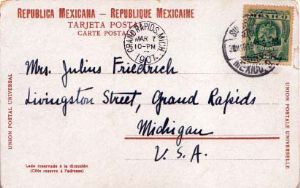 REPUBLICA MEXICANA - REPUBLIQUE MEXICAINE
TARJETA POSTAL
CARTE POSTALE
GRAND RAPIDS, MICH.
MAR 7
10-PM
1907
MEXICO
Mrs. Julius Friedrich
Livingston Street, Grand Rapids
Michigan
U. S. A.
UNION POSTAL UNIVERSAL
UNION POSTALE UNIVERSELLE
Lado reservado á la dirección
(Côté réservé à l'adresse)